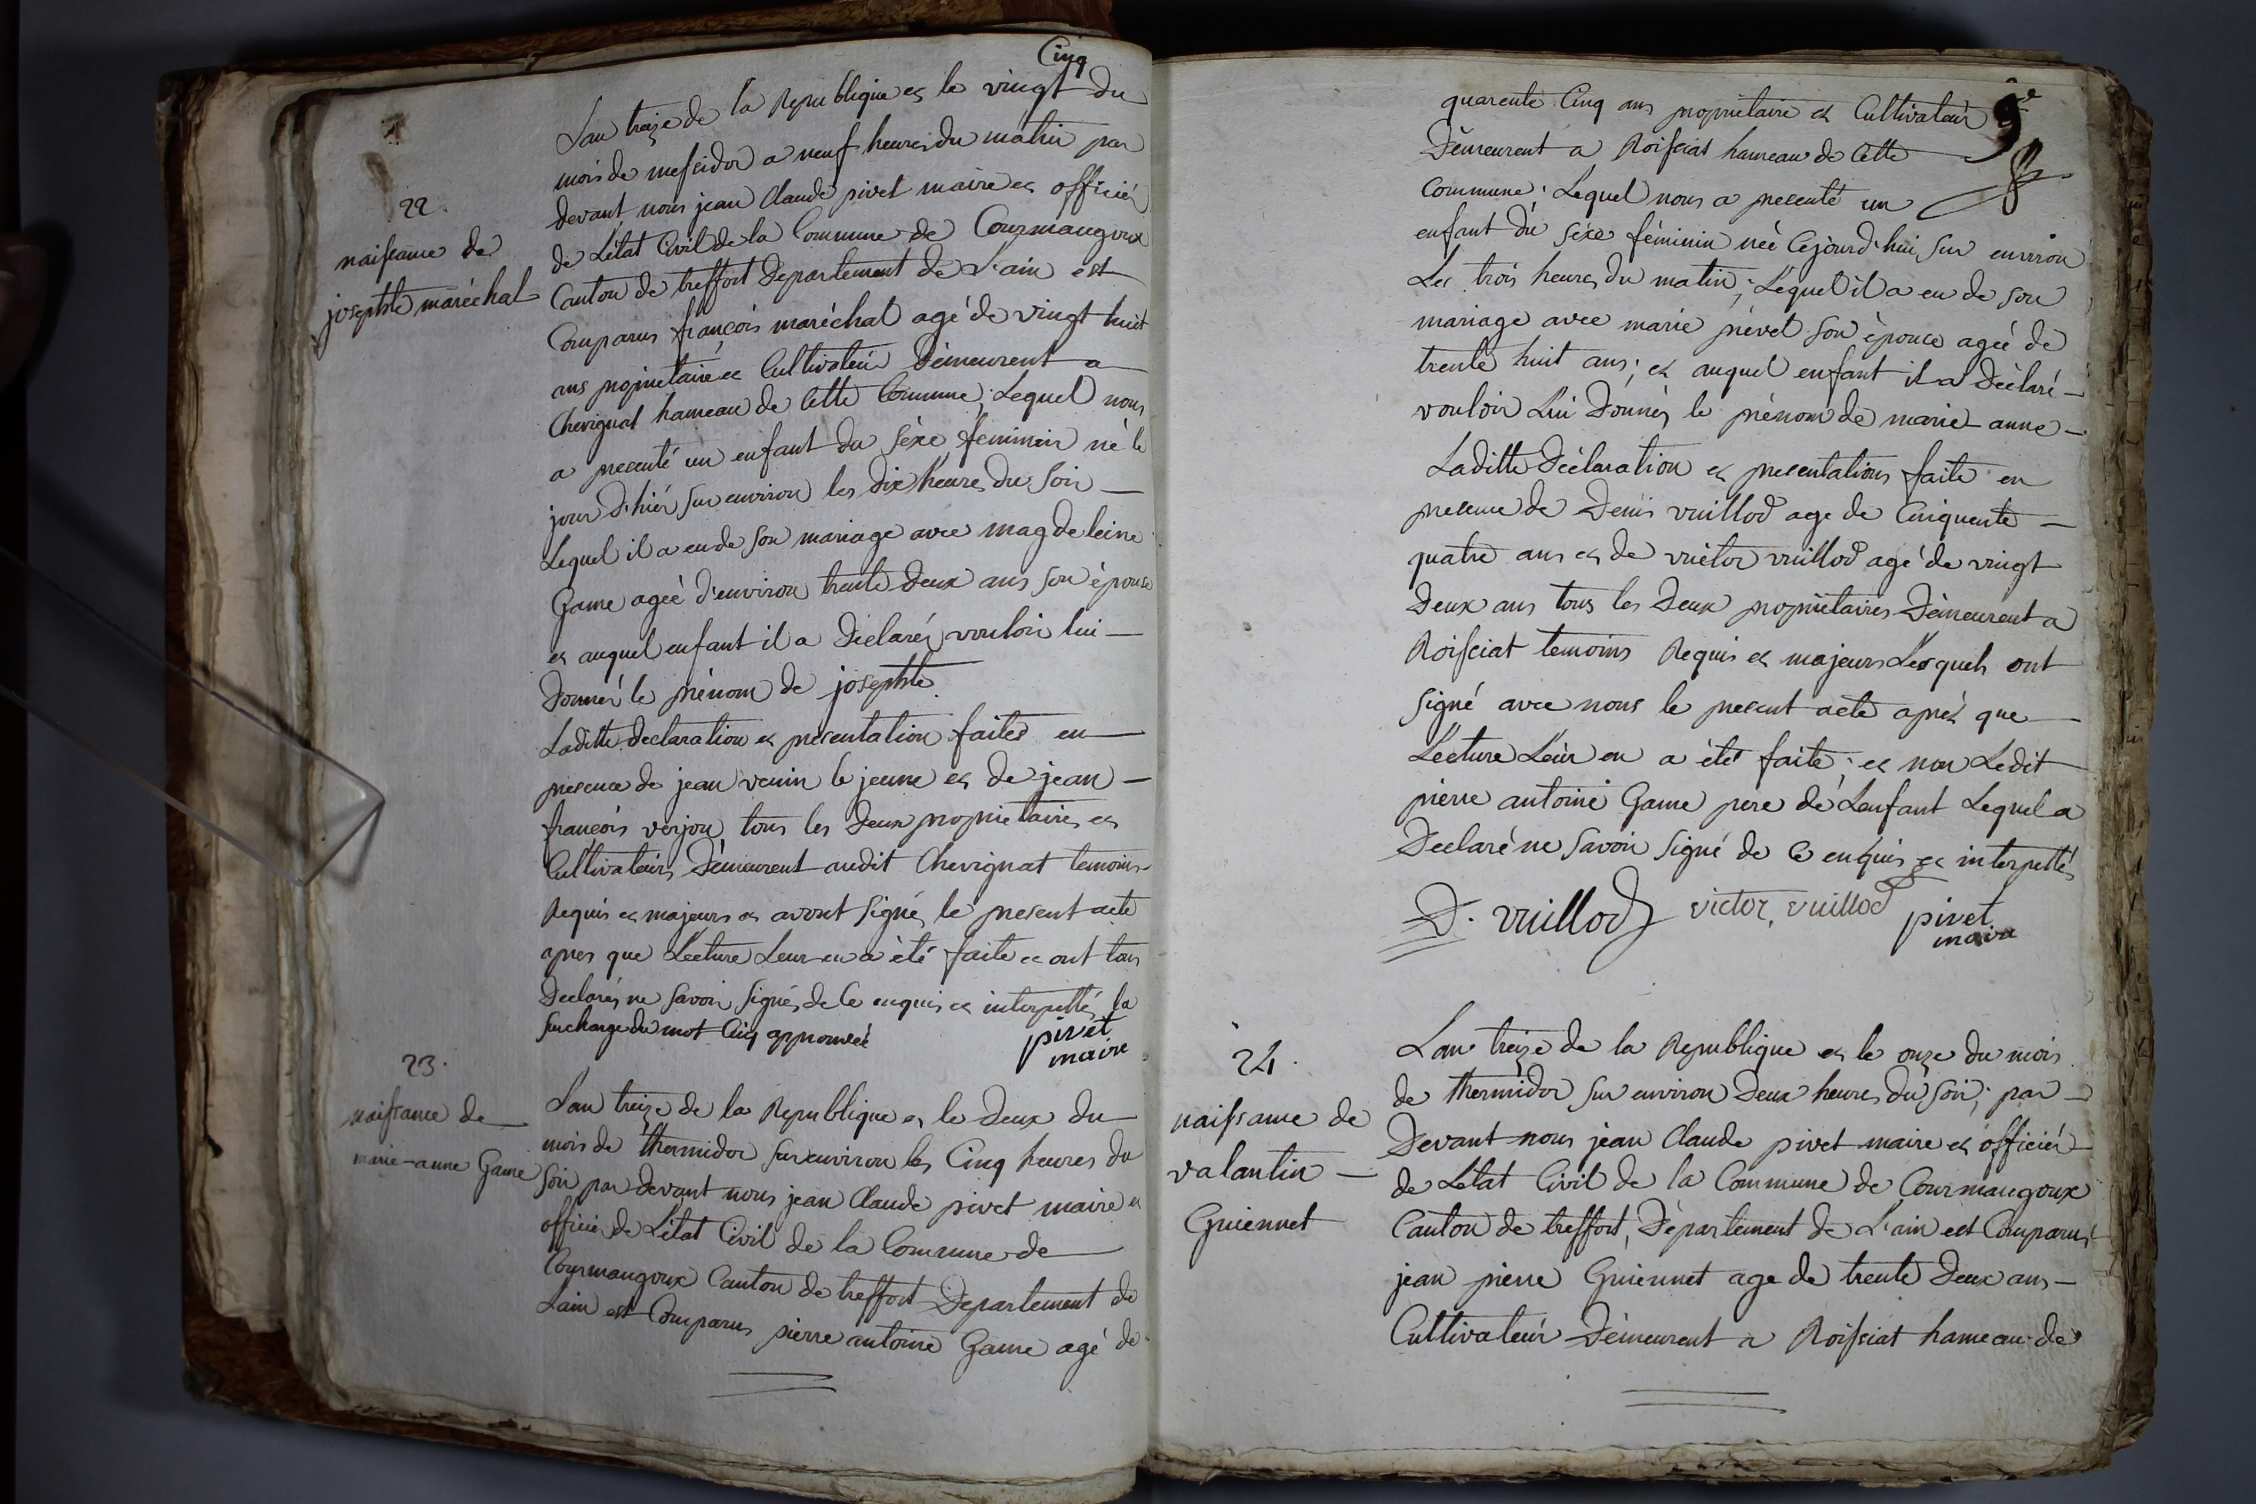 Cinq
L'an treize de la Republique et le vingt du
mois de messidor a neuf heures du matin par
devant nous jean Claude pivet maire et officiér
de L'état Civil de la Commune de Courmangoux
Canton de treffort Departement de L'ain est
Comparus françois maréchal agé de vingt huit
ans proprietaire et Cultivateur Démeurent a
Chevignat hameau de Cette Commune; Lequel nous
a presenté un enfant du séxe féminin né le
jour D'hiér sur environ les dix heures du soir
Lequel il a eu de son mariage avec magdeleine
Game ageé d'environ trente deux ans son épouse
et auquel enfant il a Déclarér vouloir lui
Donnér le prénom de josephte
Laditte declaration et presentation faites en
presence de jean venin le jeune et de jean
françois verjon tous les Deux proprietaires et
Cultivateurs Démeurent audit Chevignat temoins
Requis et majeurs et avont signé le present acte
apres que Lecture Leur en a été faite et ont tous
Declarés ne savoir signés de Ce enquis et interpellés la
surcharge du mot Cinq approuveé
pivet
maire
22.
naissance de
josephte maréchal
23.
naissance de
marie-anne Game
L'an treize de la Republique et le deux du
mois de thermidor sur environ les Cinq heures du
soir par devant nous jean Claude pivet maire et
officiér de L'état Civil de la Commune de
Courmangoux Canton de treffort Departement de
L'ain est Comparus pierre antoine Game agé de
9e
quarente Cinq ans proprietaire et Cultivateur
Démeurent a Roissiat hameau de Cette
Commune; Lequel nous a presenté un
enfant du séxe féminin neé Cejourd'hui sur environ
Les trois heures du matin; Lequel il a eu de son
mariage avec marie pevet son épouce ageé de
trente huit ans; et auquel enfant il a Déclaré
vouloir Lui Donnér le prénom de marie anne
Laditte Déclaration et presentations faite en
presence de Denis vuillod age de Cinquente
quatre ans et de victor vuillod agé de vingt
Deux ans tous les Deux proprietaires Démeurent a
Roissiat temoins Requis et majeurs Lesquels ont
signé avec nous le present acte aprés que
Lecture Leur en a été faite; et non Ledit
pierre antoine Game pere de L'enfant Lequel a
Declaré ne savoir signé de Ce enquis et interpellé
D. vuillod victor vuillod pivet
maire
24.
naissance de
valantin
Guiennet
L'an treize de la Republique et le onze du mois
de thermidor sur environ Deux heures du soir; par
Devant nous jean Claude pivet maire et officiér
de L'état Civil de la Commune de Courmangoux
Canton de treffort, Département de L'ain est Comparus
jean pierre Guiennet age de trente Deux ans
Cultivateur Démeurent a Roissiat hameau de